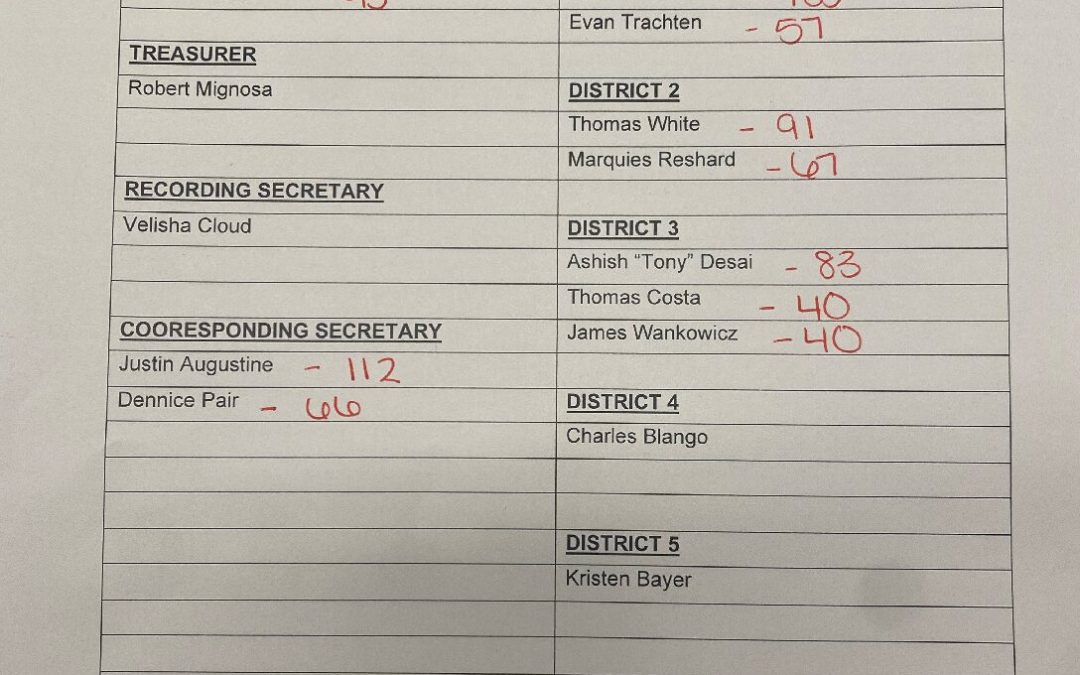 Evan Trachten - 57
TREASURER
Robert Mignosa
DISTRICT 2
Thomas White - 91
Marquies Reshard - 67
RECORDING SECRETARY
Velisha Cloud
DISTRICT 3
Ashish “Tony” Desai - 83
Thomas Costa - 40
COORESPONDING SECRETARY
James Wankowicz - 40
Justin Augustine - 112
Dennice Pair - 66
DISTRICT 4
Charles Blango
DISTRICT 5
Kristen Bayer